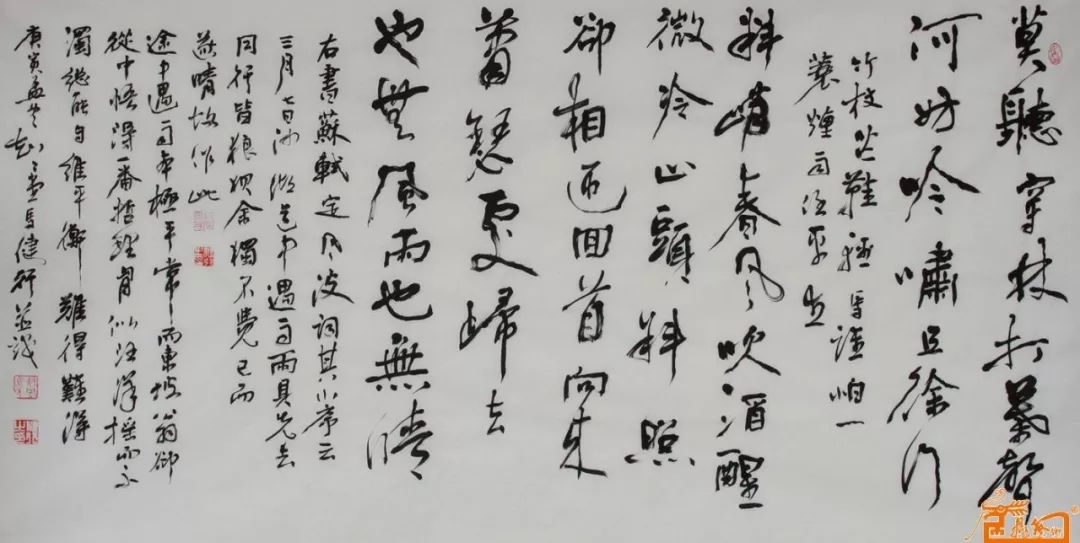 莫聽穿林打葉聲
何妨吟嘯且徐行
竹杖芒鞋輕馬誰怕一
蓑煙雨任平生
料峭春風吹酒醒
微冷山頭斜照
卻相迎回首向來
蕭瑟處歸去
也無風雨也無晴
右書蘇軾定風波詞其小序云
三月七日沙湖道中遇雨雨具先去
同行皆狼狽余獨不覺已而
遂晴故作此
途中遇雨本極平常而東坡翁卻
從中悟得一番哲理肖似汪洋而不
濁繼能自維平衡 難得難得
庚寅孟馬健行並識